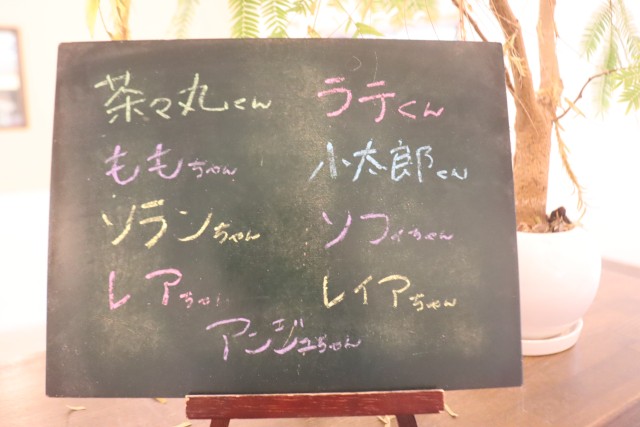 茶々丸くん ラテくん
ももちゃん 小太郎くん
ソランちゃん ソフィちゃん
レアちゃん レイアちゃん
アンジュちゃん